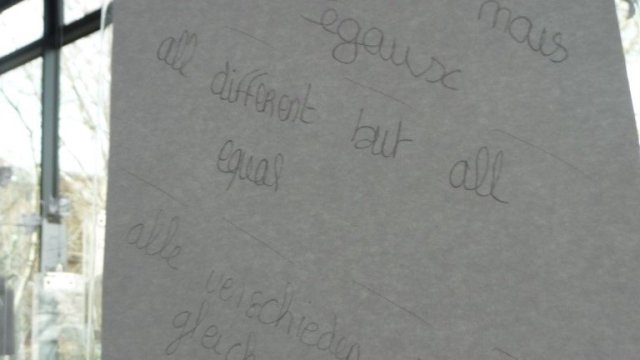 mais
égaux
all different but all
equal
alle verschieden
gleich